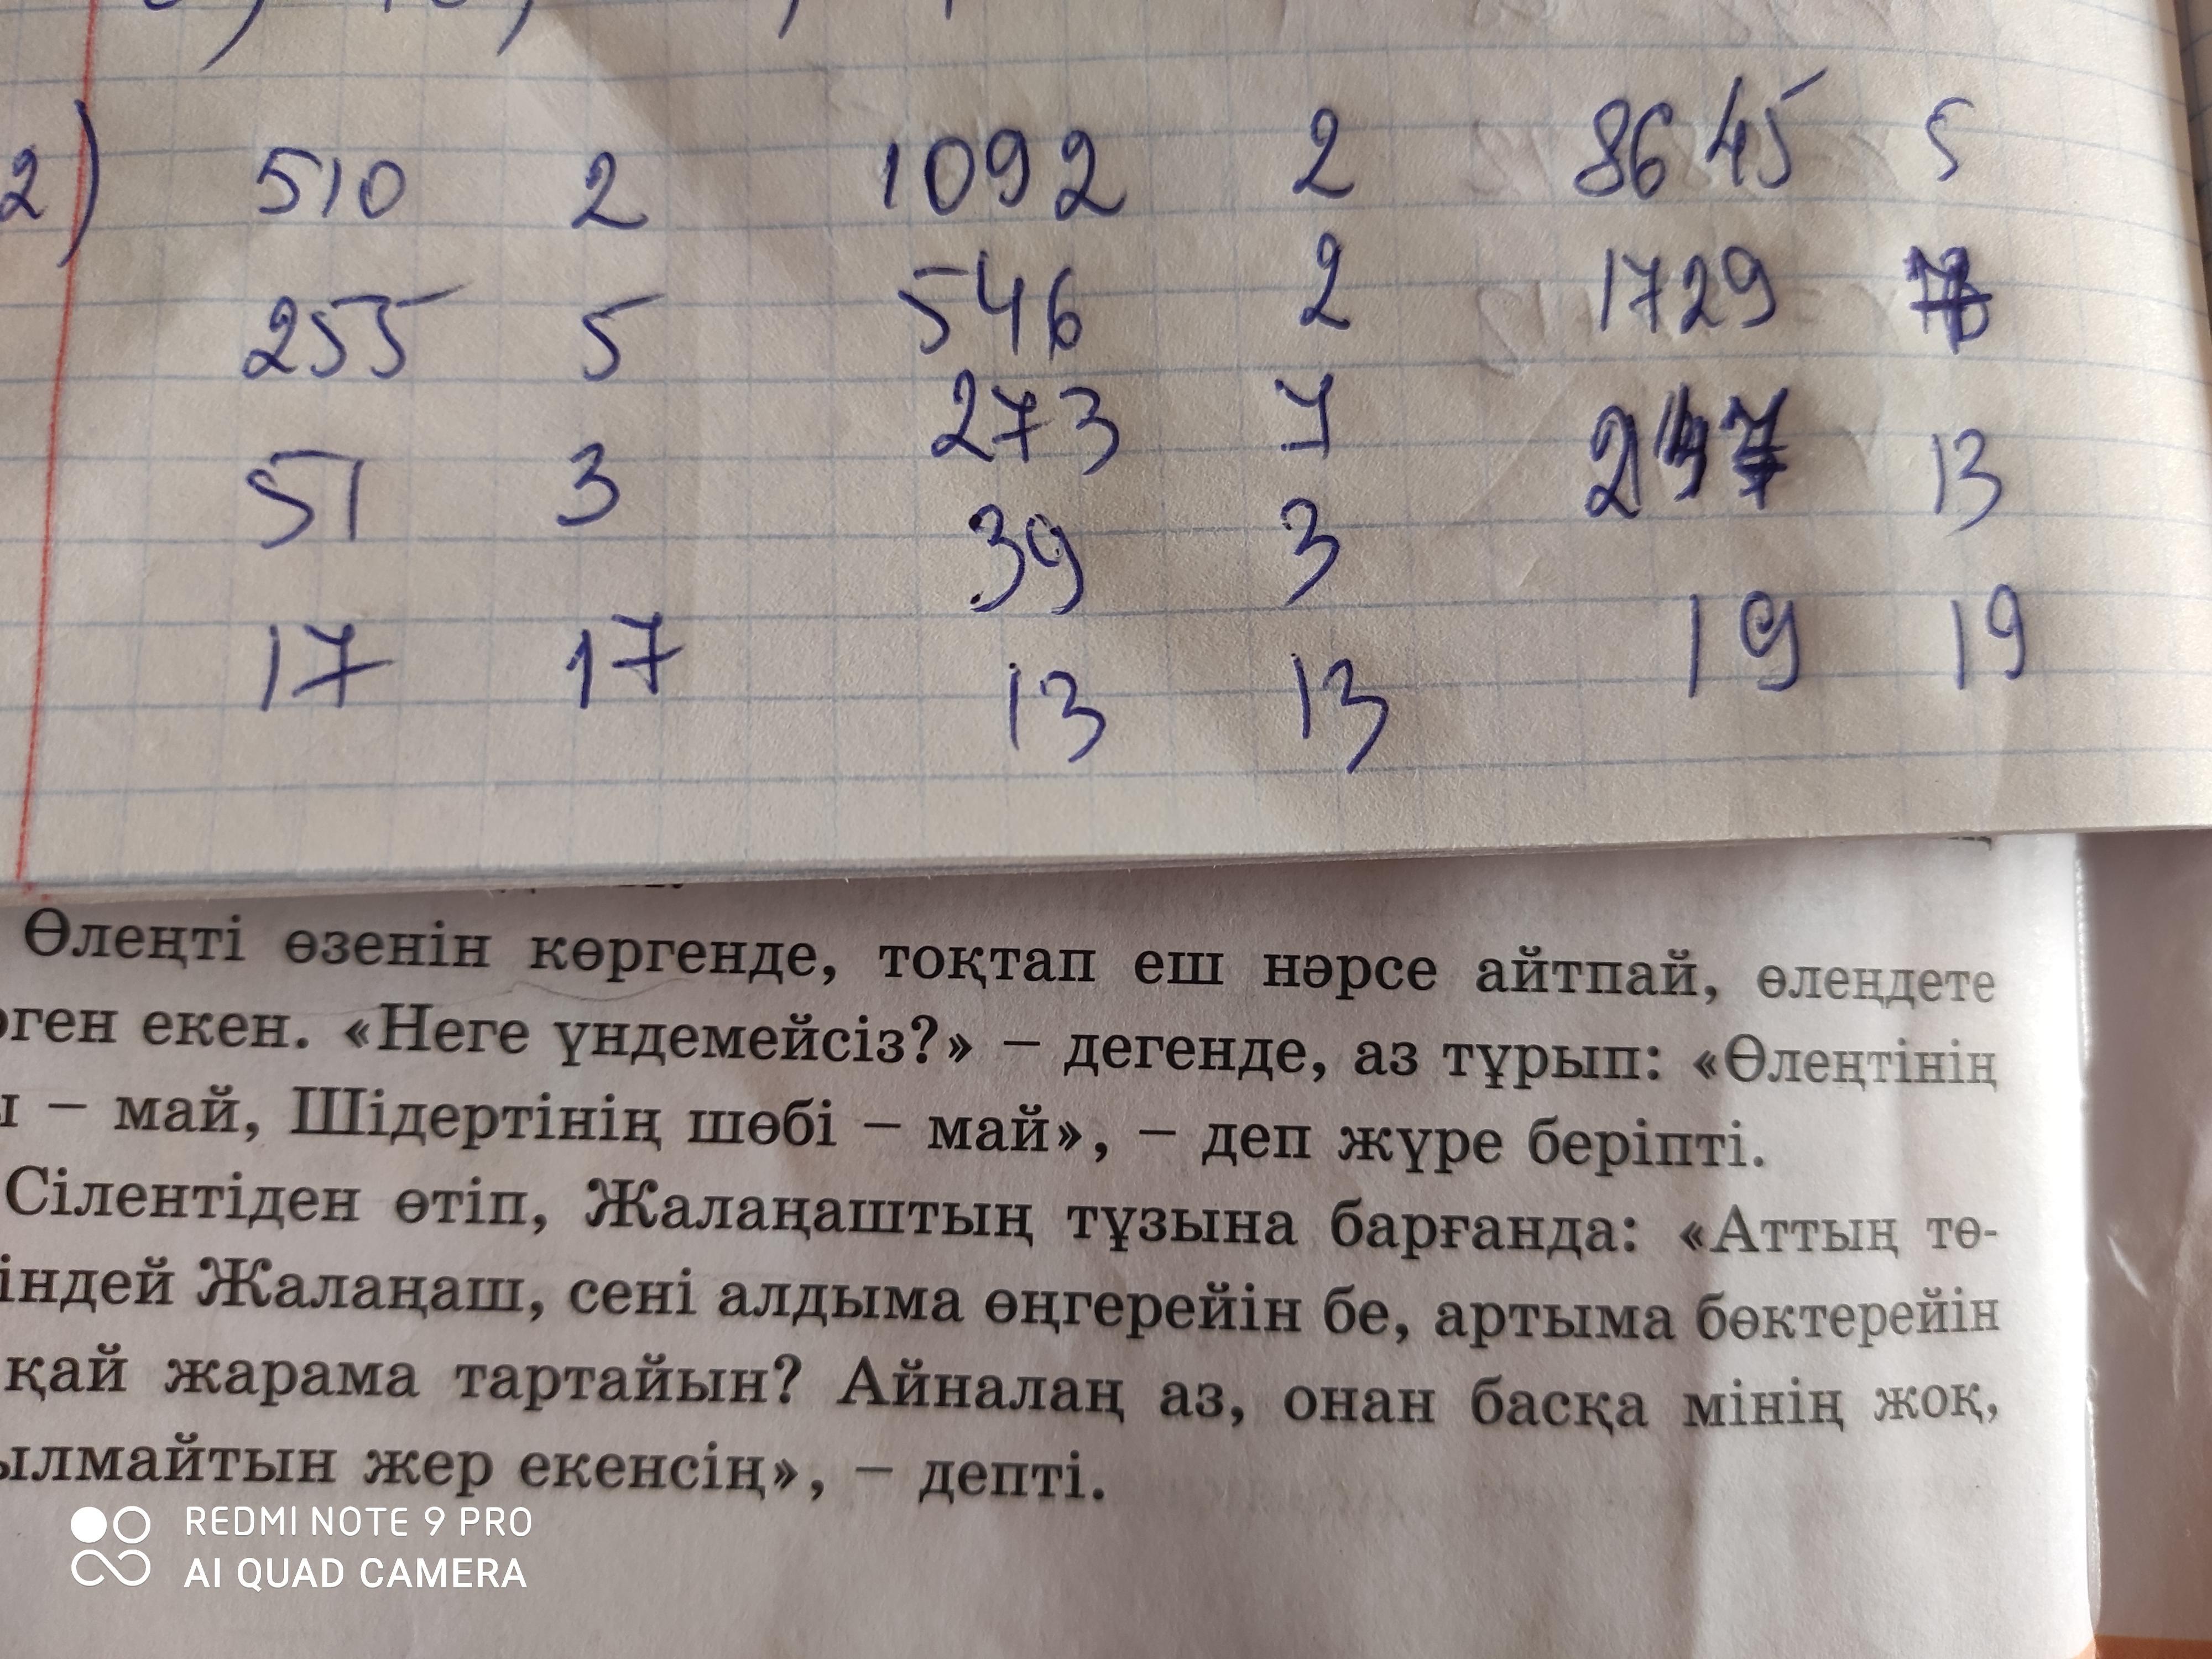 2) 510 2 1092 2 8645 5
255 5 546 2 1729
51 3 273 7 247 13
17 17 39 3 19 19
13 13
Өлеңті өзенін көргенде, тоқтап еш нәрсе айтпай, өлеңдете
рген екен. «Неге үндемейсіз?» – дегенде, аз тұрып: «Өлеңтінің
ы – май, Шідертінің шөбі – май», – деп жүре беріпті.
Сілентіден өтіп, Жалаңаштың тұзына барғанда: «Аттың тө-
індей Жалаңаш, сені алдыма өңгерейін бе, артыма бөктерейін
қай жарама тартайын? Айналаң аз, онан басқа мінің жоқ,
ылмайтын жер екенсің», – депті.
REDMI NOTE 9 PRO
AI QUAD CAMERA